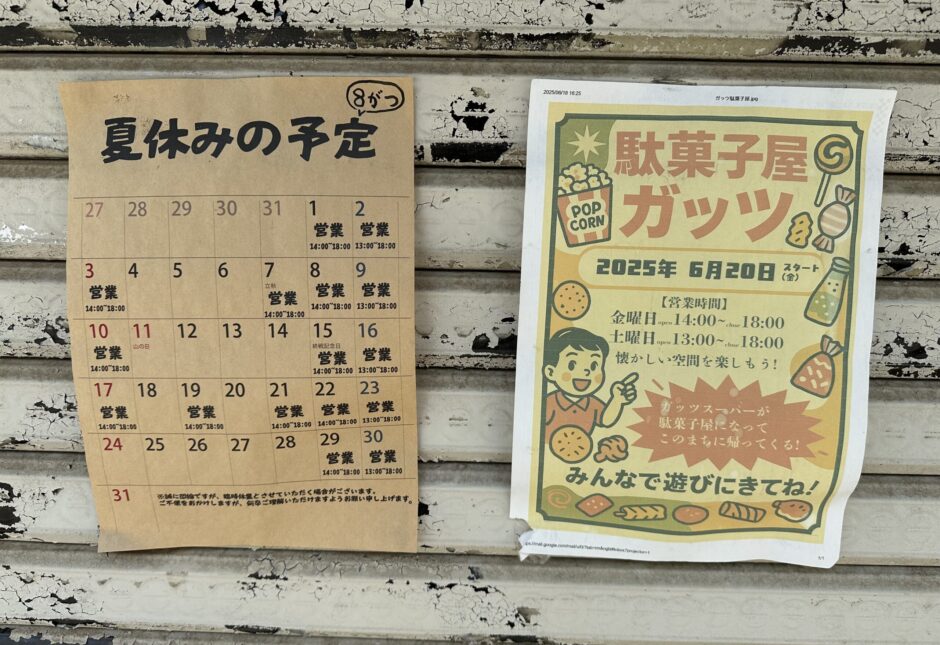 8がつ
夏休みの予定
27 28 29 30 31 1 2
営業 営業
14:00~18:00 13:00~18:00
3 4 5 6 7 8 9
立秋
営業 営業 営業 営業
14:00~18:00 14:00~18:00 14:00~18:00 13:00~18:00
10 11 12 13 14 15 16
山の日 終戦記念日
営業 営業 営業
14:00~18:00 14:00~18:00 13:00~18:00
17 18 19 20 21 22 23
営業 営業 営業 営業 営業
14:00~18:00 14:00~18:00 14:00~18:00 14:00~18:00 13:00~18:00
24 25 26 27 28 29 30
営業 営業
14:00~18:00 13:00~18:00
31
※誠に勝手ですが、臨時休業とさせていただく場合がございます。
ご不便をおかけしますが、何卒ご理解いただけますようお願い申し上げます。
2025/06/18 16:25
ガッツ駄菓子屋.jpg
駄菓子屋
ガッツ
POP
CORN
2025年 6月20日 スタート
(金)
【営業時間】
金曜日open14:00~close18:00
土曜日open13:00~close18:00
懐かしい空間を楽しもう!
ガッツスーパーが
駄菓子屋になって
このまちに帰ってくる!
みんなで遊びにきてね!
1/1